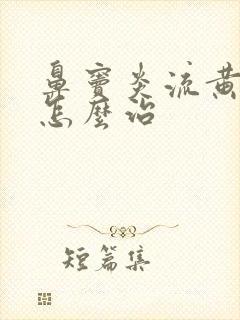 鼻窦炎流黄
怎麼治
短篇集